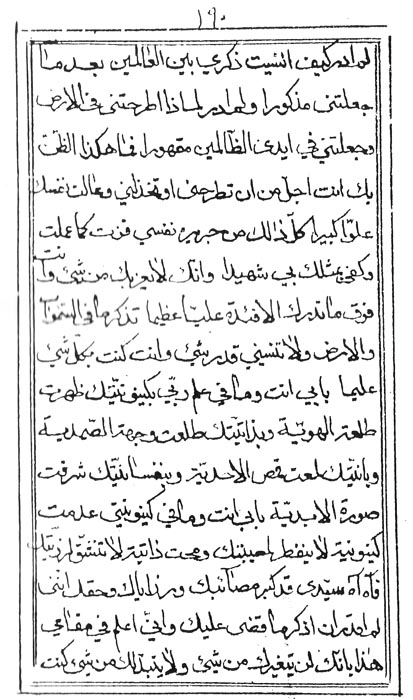 ١٩٠
لم ادر كيف انسيت ذكري بين العالمين بعد ما
جعلتني مذكورا ولم ادر لماذا اطرحتني في الارض
وجعلتني في ايدي الظالمين مقهورا فما هكذا الظن
بك انت اجل من ان تطرحني او تخذلني وتعاليت نفسك
علوّا كبيرا كلّ ذالك من جريره نفسي قربت كما عملت
وكفى بمثلك بي شهيدا وانك لا يعزبك من شئ وانت
فوق ما تدرك الافئدة عليّا عظيما تذكر ما في السموات
والارض ولا تنسني قدر شئ وانت كنت بكل شئ
عليما بابي انت وما في علم ربّي بكينونتيّتك ظهرت
طلعة الهويّة وبذاتيّتك طلعت وجهة الصّمديّة
وبانيّتك لمعت قمص الاحديّة وبنفسانيّتك شرقت
صورة الابديّة بابي انت وما في كينونيتي عدمت
كينونية لا ينفطر لمصيبتك ومحت ذاتية لا تنشق لرزيّتك
فآه آه سيّدي قد كبر مصآئبك ورزاياك وحقك انني
لم اقدر ان اذكر ما قضى عليك واني اعلم في مقامي
هذا بانك لن يتغيرك من شئ ولا يتبدلك من شئ كنت